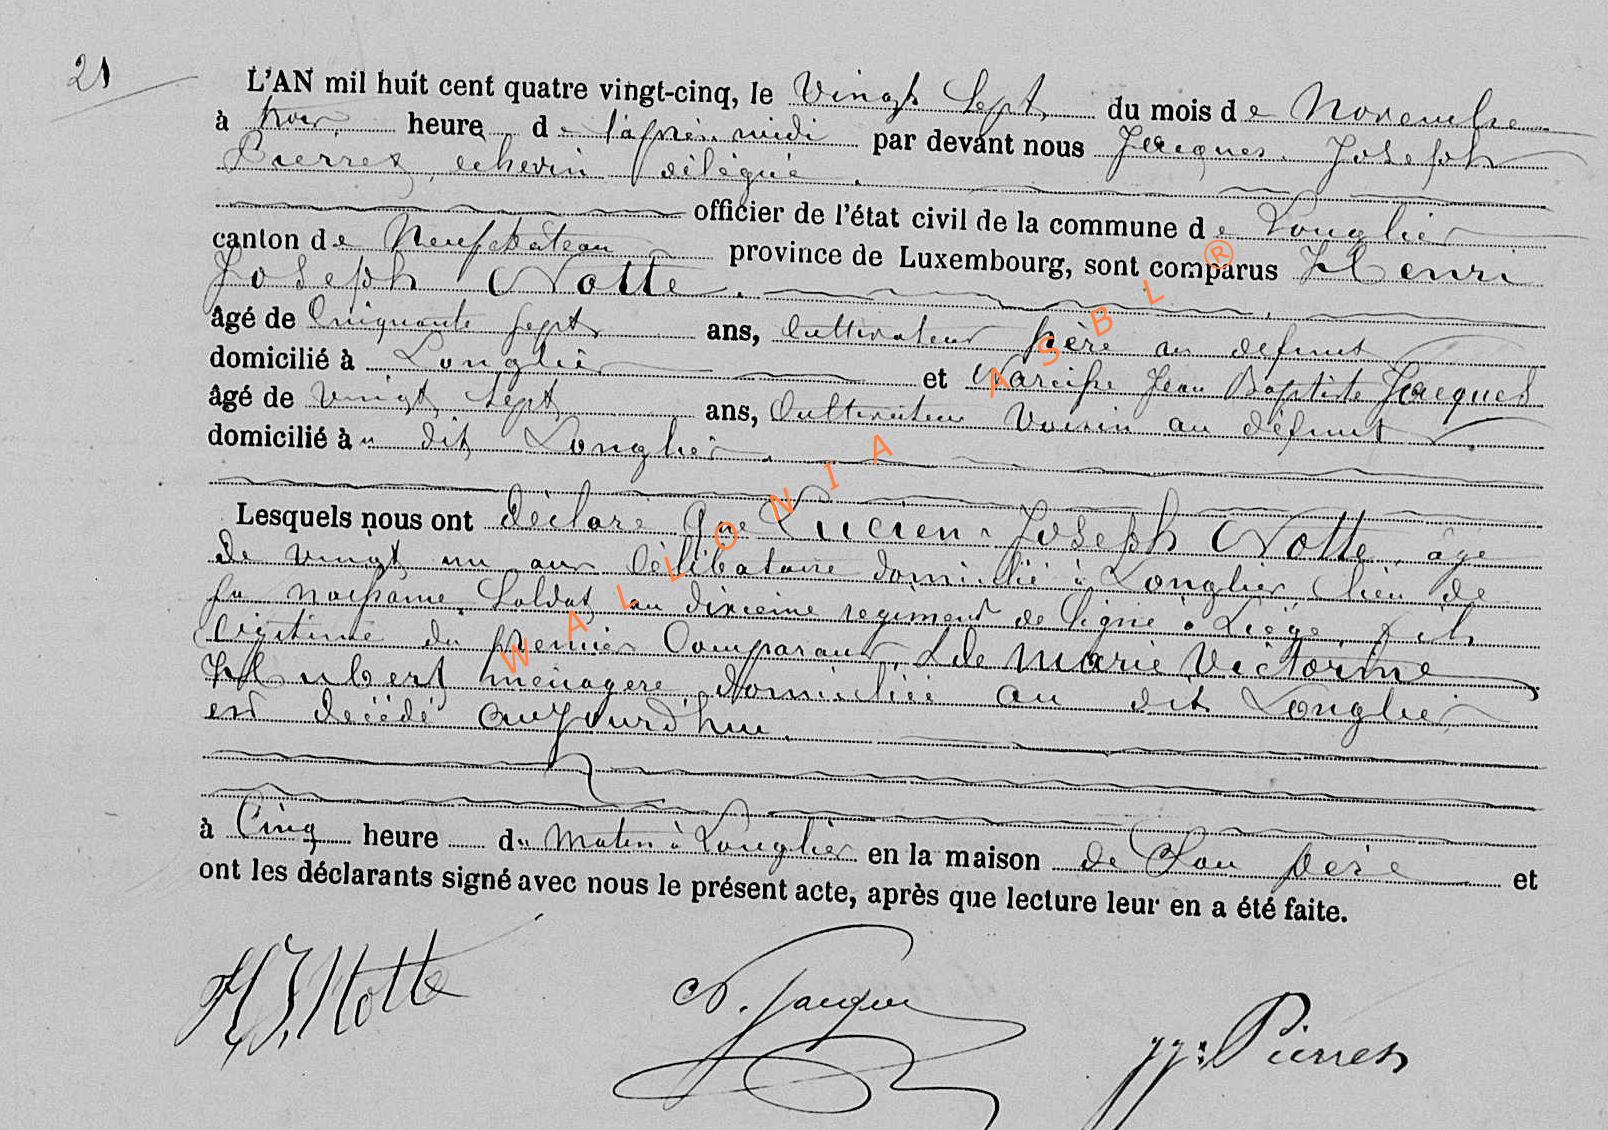 21
L'AN mil huit cent quatre vingt-cinq, le Vingt Sept du mois de Novembre
à trois heures de l'après-midi par devant nous Jacques Joseph
Pierret, échevin délégué
officier de l'état civil de la commune de Longlier
canton de Neufchâteau province de Luxembourg, sont comparus Henri
Joseph Notte.
âgé de Cinquante Sept ans, Cultivateur père au défunt
domicilié à Longlier et Narcisse Jean Baptiste Jacques
âgé de Vingt Sept ans, Cultivateur Voisin au défunt
domicilié au dit Longlier.
Lesquels nous ont déclaré que Lucien Joseph Notte, âgé
de vingt un ans Célibataire domicilié à Longlier, lieu de
sa naissance, Soldat au dixième régiment de ligne à Liège, fils
légitime du premier Comparant, & de Marie Victorine
Hubert ménagère domiciliée au dit Longlier
est décédé aujourd'hui.
à Cinq heure du Matin à Longlier en la maison de Son père et
ont les déclarants signé avec nous le présent acte, après que lecture leur en a été faite.
HJ. Notte N. Jacques JJ: Pierret
WALLONIA ASBL ®